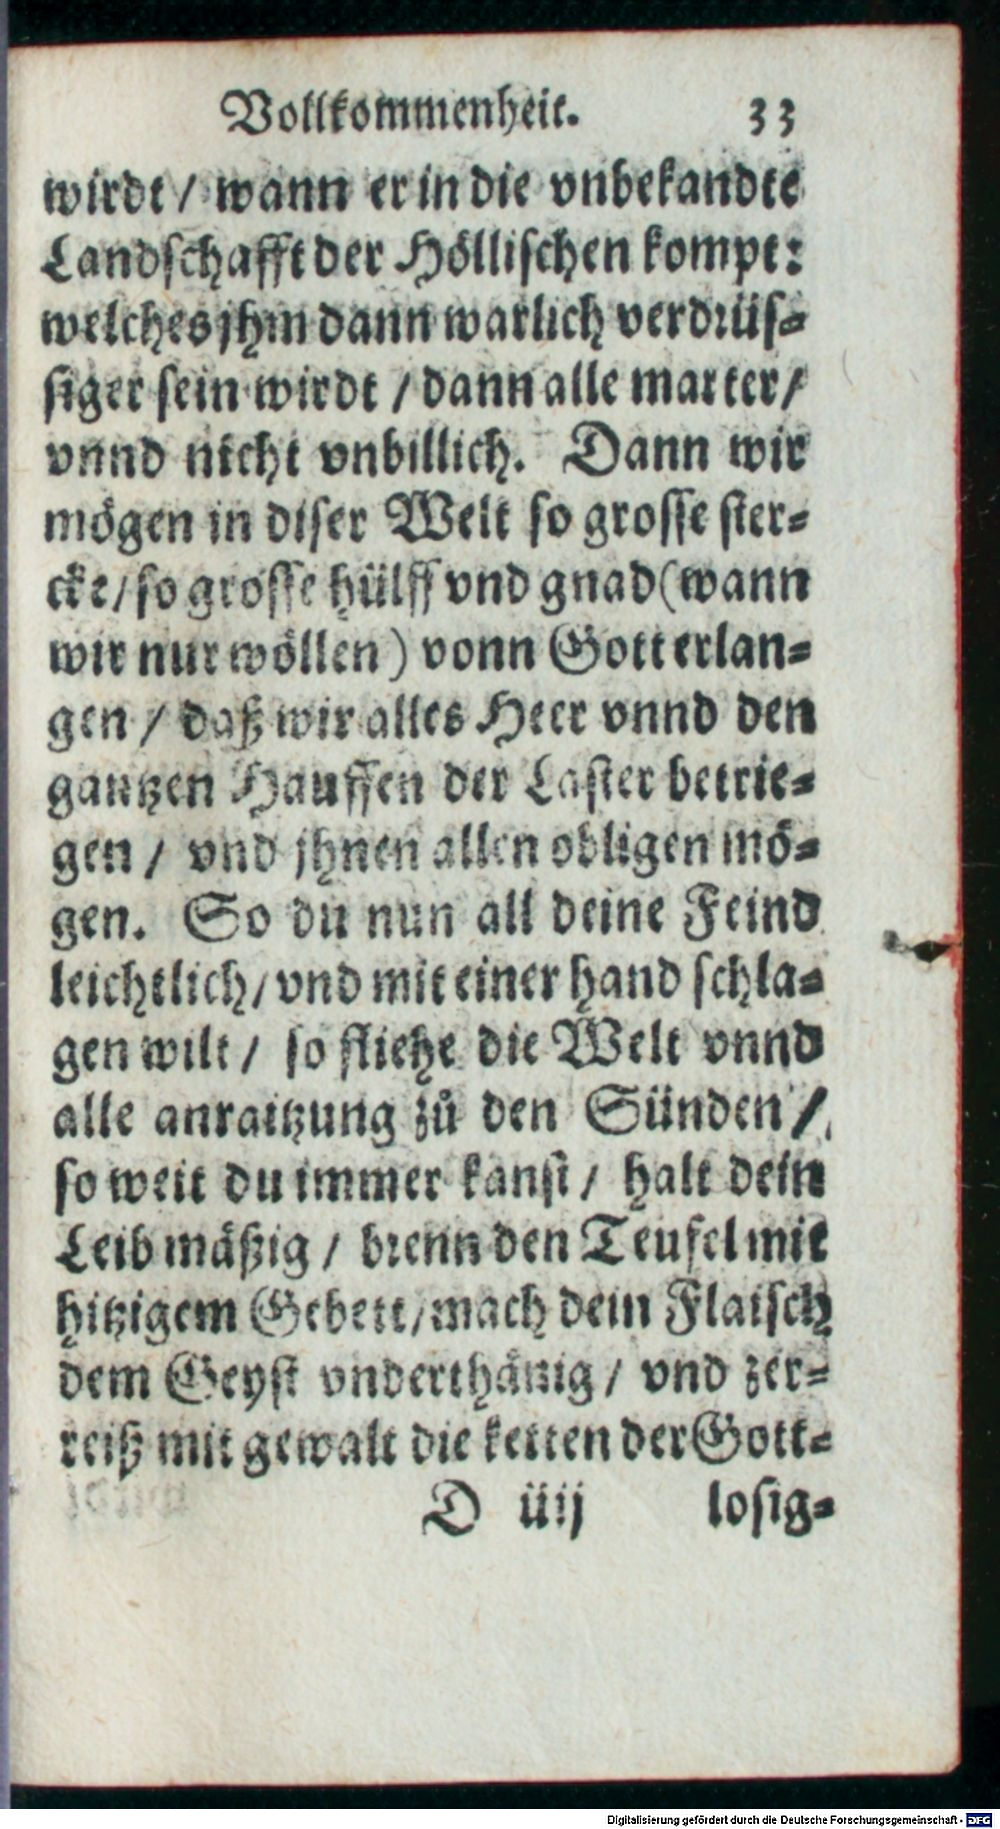 Vollkommenheit. 33
wirdt / wann er in die vnbekandte
Landschafft der Höllischen kompt:
welches jhm dann warlich verdrüs-
siger sein wirdt / dann alle marter /
vnnd nicht vnbillich. Dann wir
mögen in diser Welt so grosse ster-
cke / so grosse hülff vnd gnad (wann
wir nur wöllen) vonn Gott erlan-
gen / daß wir alles Heer vnnd den
gantzen Hauffen der Laster betrie-
gen / vnd jhnen allen obligen mö-
gen. So du nun all deine Feind
leichtlich / vnd mit einer hand schla-
gen wilt / so fliehe die Welt vnnd
alle anraitzung zů den Sünden /
so weit du immer kanst / halt dein
Leib mäßig / brenn den Teufel mit
hitzigem Gebett / mach dein Flaisch
dem Geyst vnderthänig / vnd zer-
reiß mit gewalt die ketten der Gott-
D iiij losig-
Digitalisierung gefördert durch die Deutsche Forschungsgemeinschaft - DFG